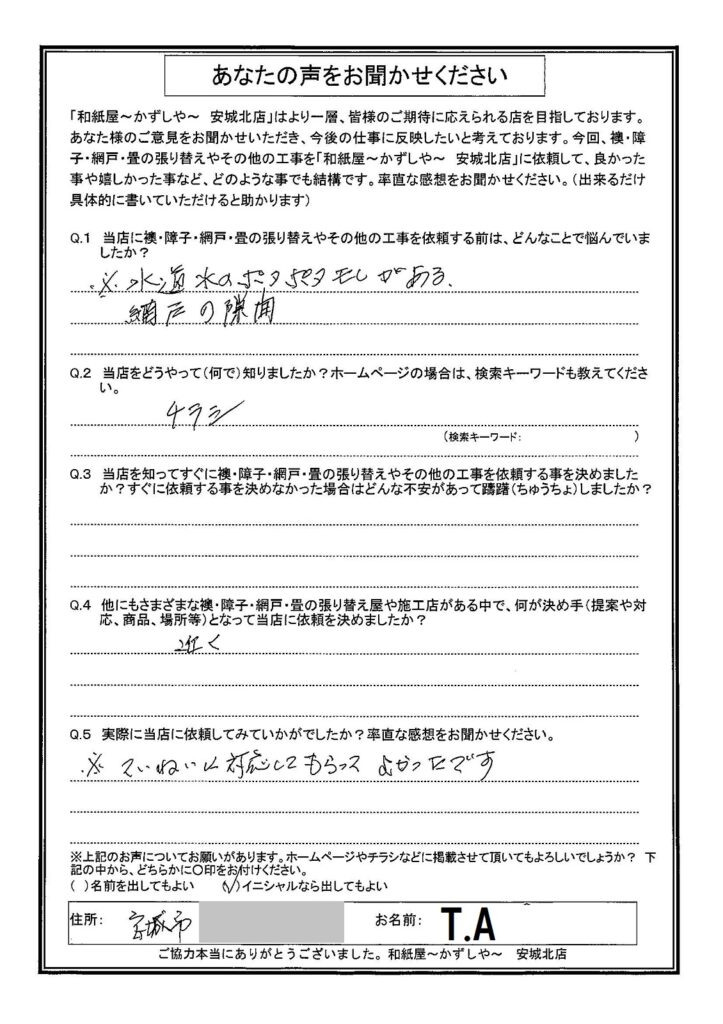 あなたの声をお聞かせください
「和紙屋～かずしや～　安城北店」はより一層、皆様のご期待に応えられる店を目指しております。
あなた様のご意見をお聞かせいただき、今後の仕事に反映したいと考えております。今回、襖・障
子・網戸・畳の張り替えやその他の工事を「和紙屋～かずしや～　安城北店」に依頼して、良かった
事や嬉しかった事など、どのような事でも結構です。率直な感想をお聞かせください。（出来るだけ
具体的に書いていただけると助かります）
Q.1　当店に襖・障子・網戸・畳の張り替えやその他の工事を依頼する前は、どんなことで悩んでいま
したか？
※ 水道水のポタポタモレがある.
網戸の隙間
Q.2　当店をどうやって（何で）知りましたか？ホームページの場合は、検索キーワードも教えてくださ
い。
チラシ
（検索キーワード：　　　　　　　　　）
Q.3　当店を知ってすぐに襖・障子・網戸・畳の張り替えやその他の工事を依頼する事を決めました
か？すぐに依頼する事を決めなかった場合はどんな不安があって躊躇（ちゅうちょ）しましたか？
Q.4　他にもさまざまな襖・障子・網戸・畳の張り替え屋や施工店がある中で、何が決め手（提案や対
応、商品、場所等）となって当店に依頼を決めましたか？
近く
Q.5　実際に当店に依頼してみていかがでしたか？率直な感想をお聞かせください。
※ ていねいに対応してもらって よかったです
※上記のお声についてお願いがあります。ホームページやチラシなどに掲載させて頂いてもよろしいでしょうか？　下
記の中から、どちらかに〇印をお付けください。
（ ）名前を出してもよい　（✓）イニシャルなら出してもよい
住所：　安城市　お名前：　T.A
ご協力本当にありがとうございました。和紙屋～かずしや～　安城北店